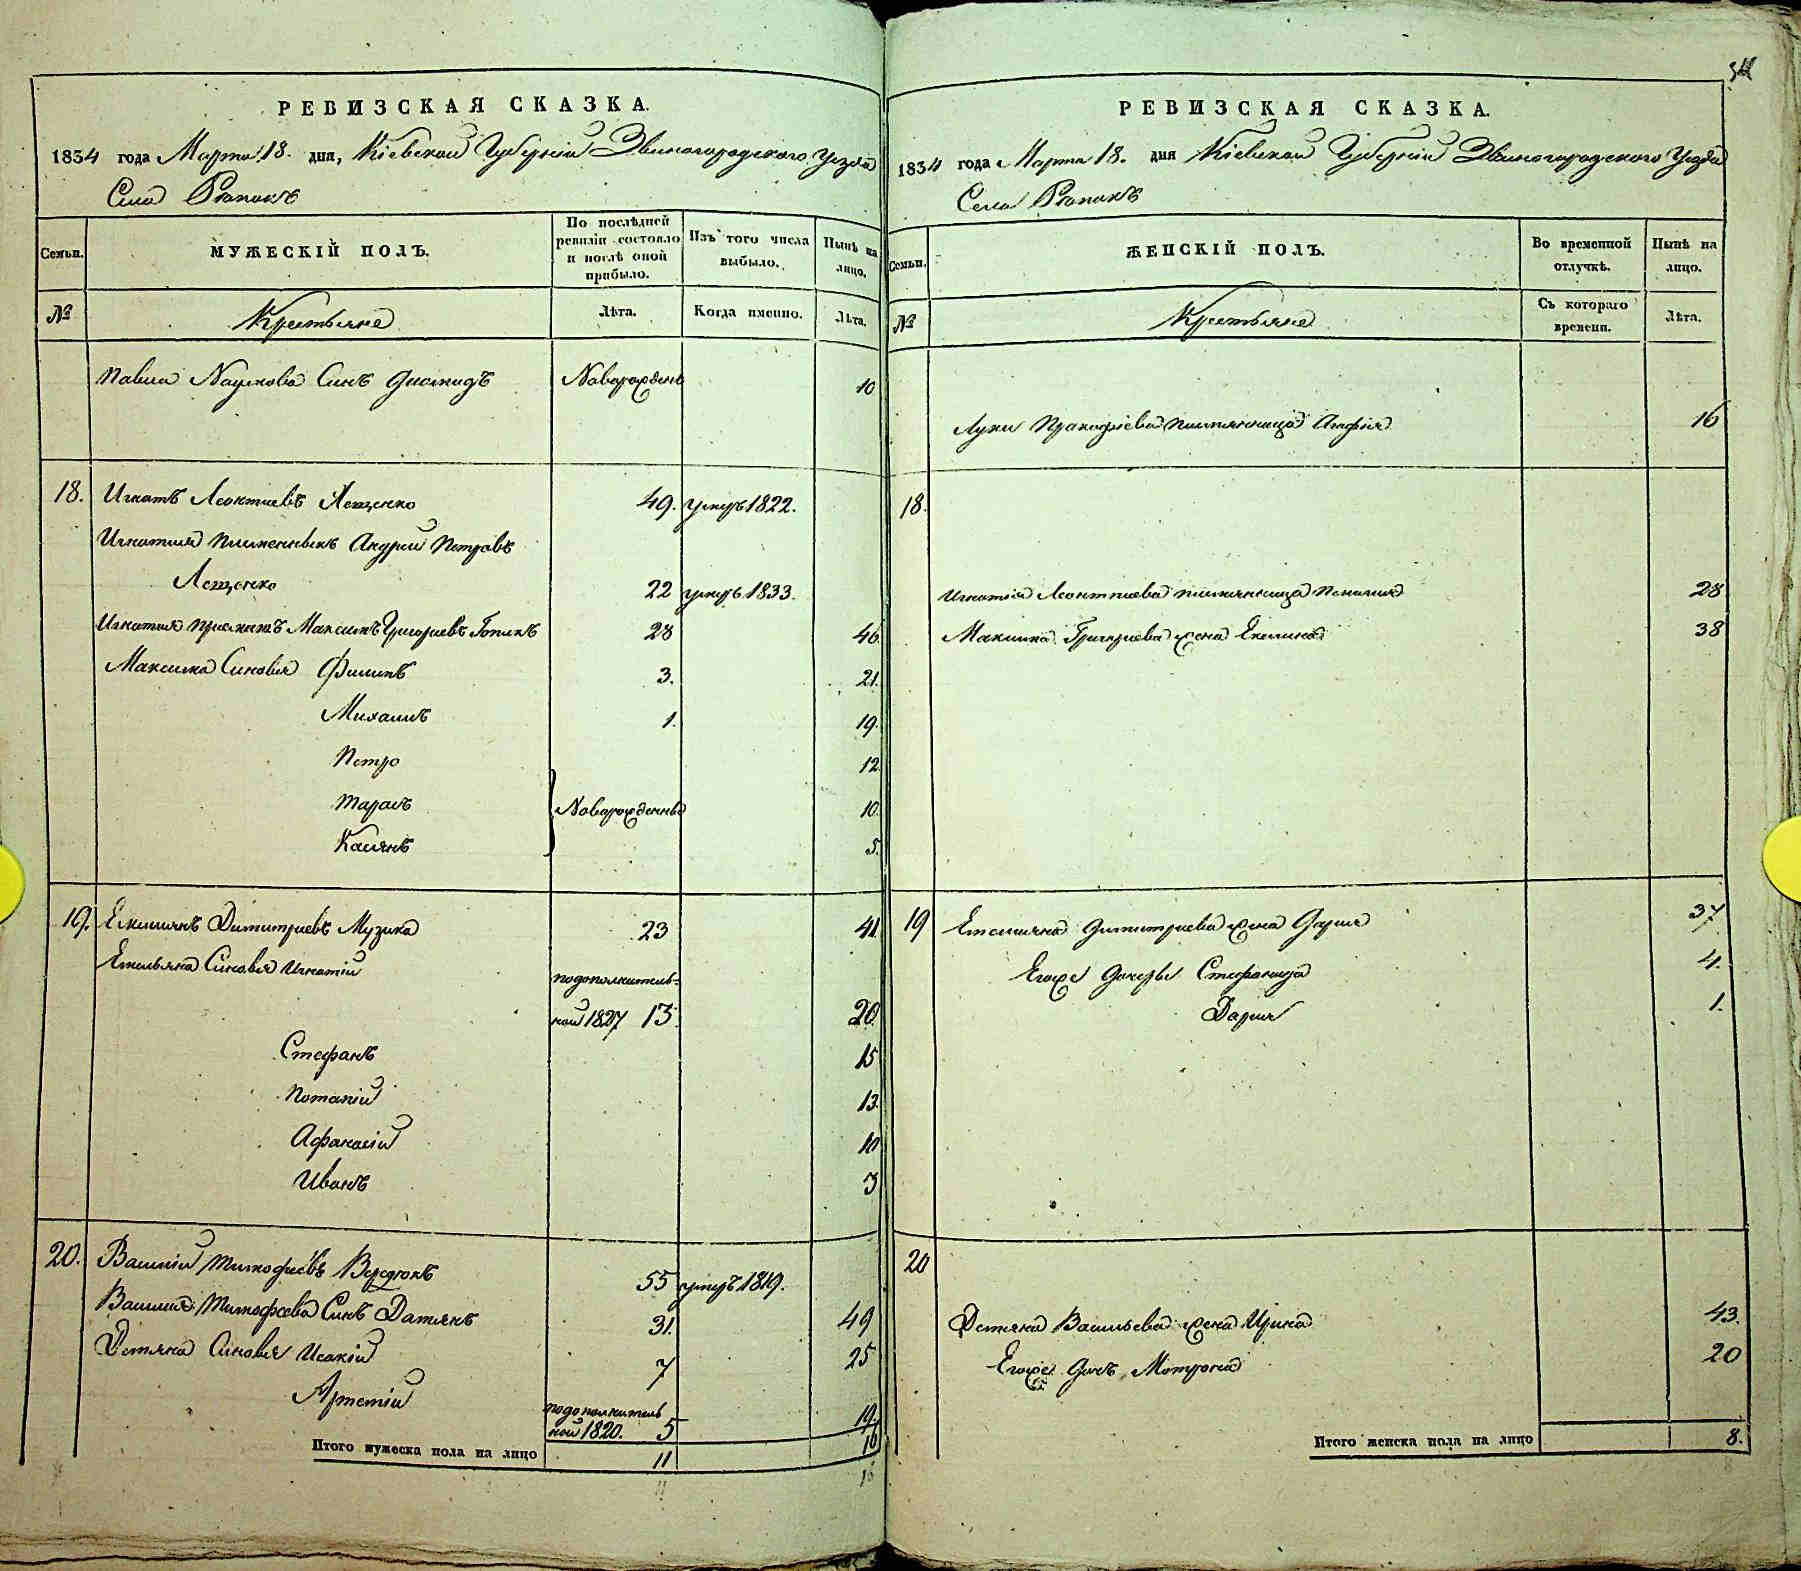 РЕВИЗСКАЯ СКАЗКА.
1834 года Марта 18. дня, Кіевской Губерніи Звиногородского Уезда
Села Рѣпокъ
Семьи.
МУЖЕСКІЙ ПОЛЪ.
По послѣдней ревизіи состояло и послѣ оной прибыло.
Изъ того числа выбыло.
Нынѣ на лицо.
№
Крестьяне
Лѣта.
Когда именно.
Лѣта.
Павла Наумова Синъ Диомидъ Новорожденъ 10
18. Игнатъ Леонтиевъ Лещенко 49. умеръ 1822.
Игнатия племенныкъ Андрей Петровъ
Лещенко 22 умеръ 1833.
Игнатия приемишъ Максимъ Григориевъ 28 46
Максима Синовья Филипъ 3. 21.
Михаилъ 1. 19.
Петро 12
Тарасъ Новорожденные 10.
Касянъ 5.
19. Емилиянъ Димитриевъ Музика 23 41
Емельяна Синовья Игнатій подополнитель-
ной 1827 13. 20
Стефанъ 15
Потапій 13.
Афанасій 10
Иванъ 3
20. Василій Тимофіевъ 55 умеръ 1819.
Василия Тимофеева Синъ Дамянъ 31. 49
Демяна Синовья Исакій 7 25
Артемій подополнитель
ной 1820. 5 19.
Итого мужеска пола на лицо 11 16
11 16
РЕВИЗСКАЯ СКАЗКА.
1834 года Марта 18. дня Кіевской Губерніи Звиногородского Уезда
Села Рѣпокъ
Семьи.
ЖЕНСКІЙ ПОЛЪ.
Во временной отлучкѣ.
Нынѣ на лицо.
№
Крестьяне
Съ котораго времени.
Лѣта.
Луки Прокофіева племянница Агафія 16
18.
Игнатія Леонтиева племянница 28
Максима Григориева жена Екилина 38
19 Емелияна Димитриева жена Дария 37
Егоже дочеры Стефанида 4.
Дария 1.
20
Демяна Васильева жена Ирина 43.
Егоже дочь Мотрона 20
Итого женска пола на лицо 8.
8